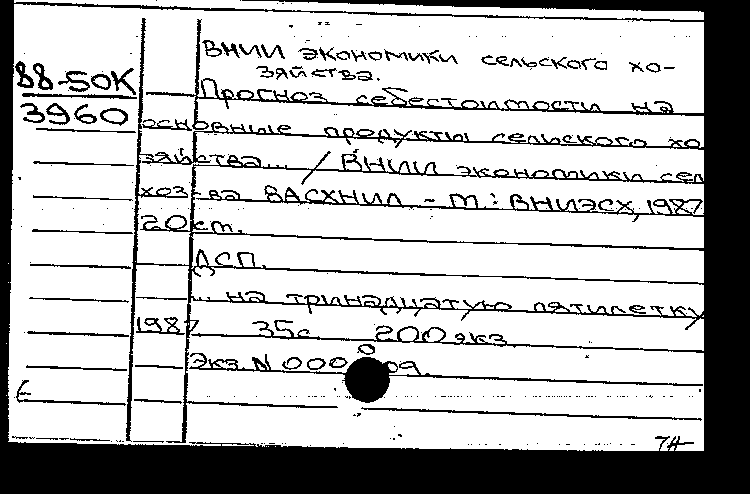 ВНИИ экономики сельского хо-
зяйства.
88-50К
3960
Прогноз себестоимости на
основные продукты сельского хо
зяйства... / ВНИИ экономики сел
хоз-ва ВАСХНИЛ. - М.: ВНИЭСХ, 1987
20 см.
ДСП.
... на тринадцатую пятилетку
1987 35с 200 экз.
Экз. N 000 09.